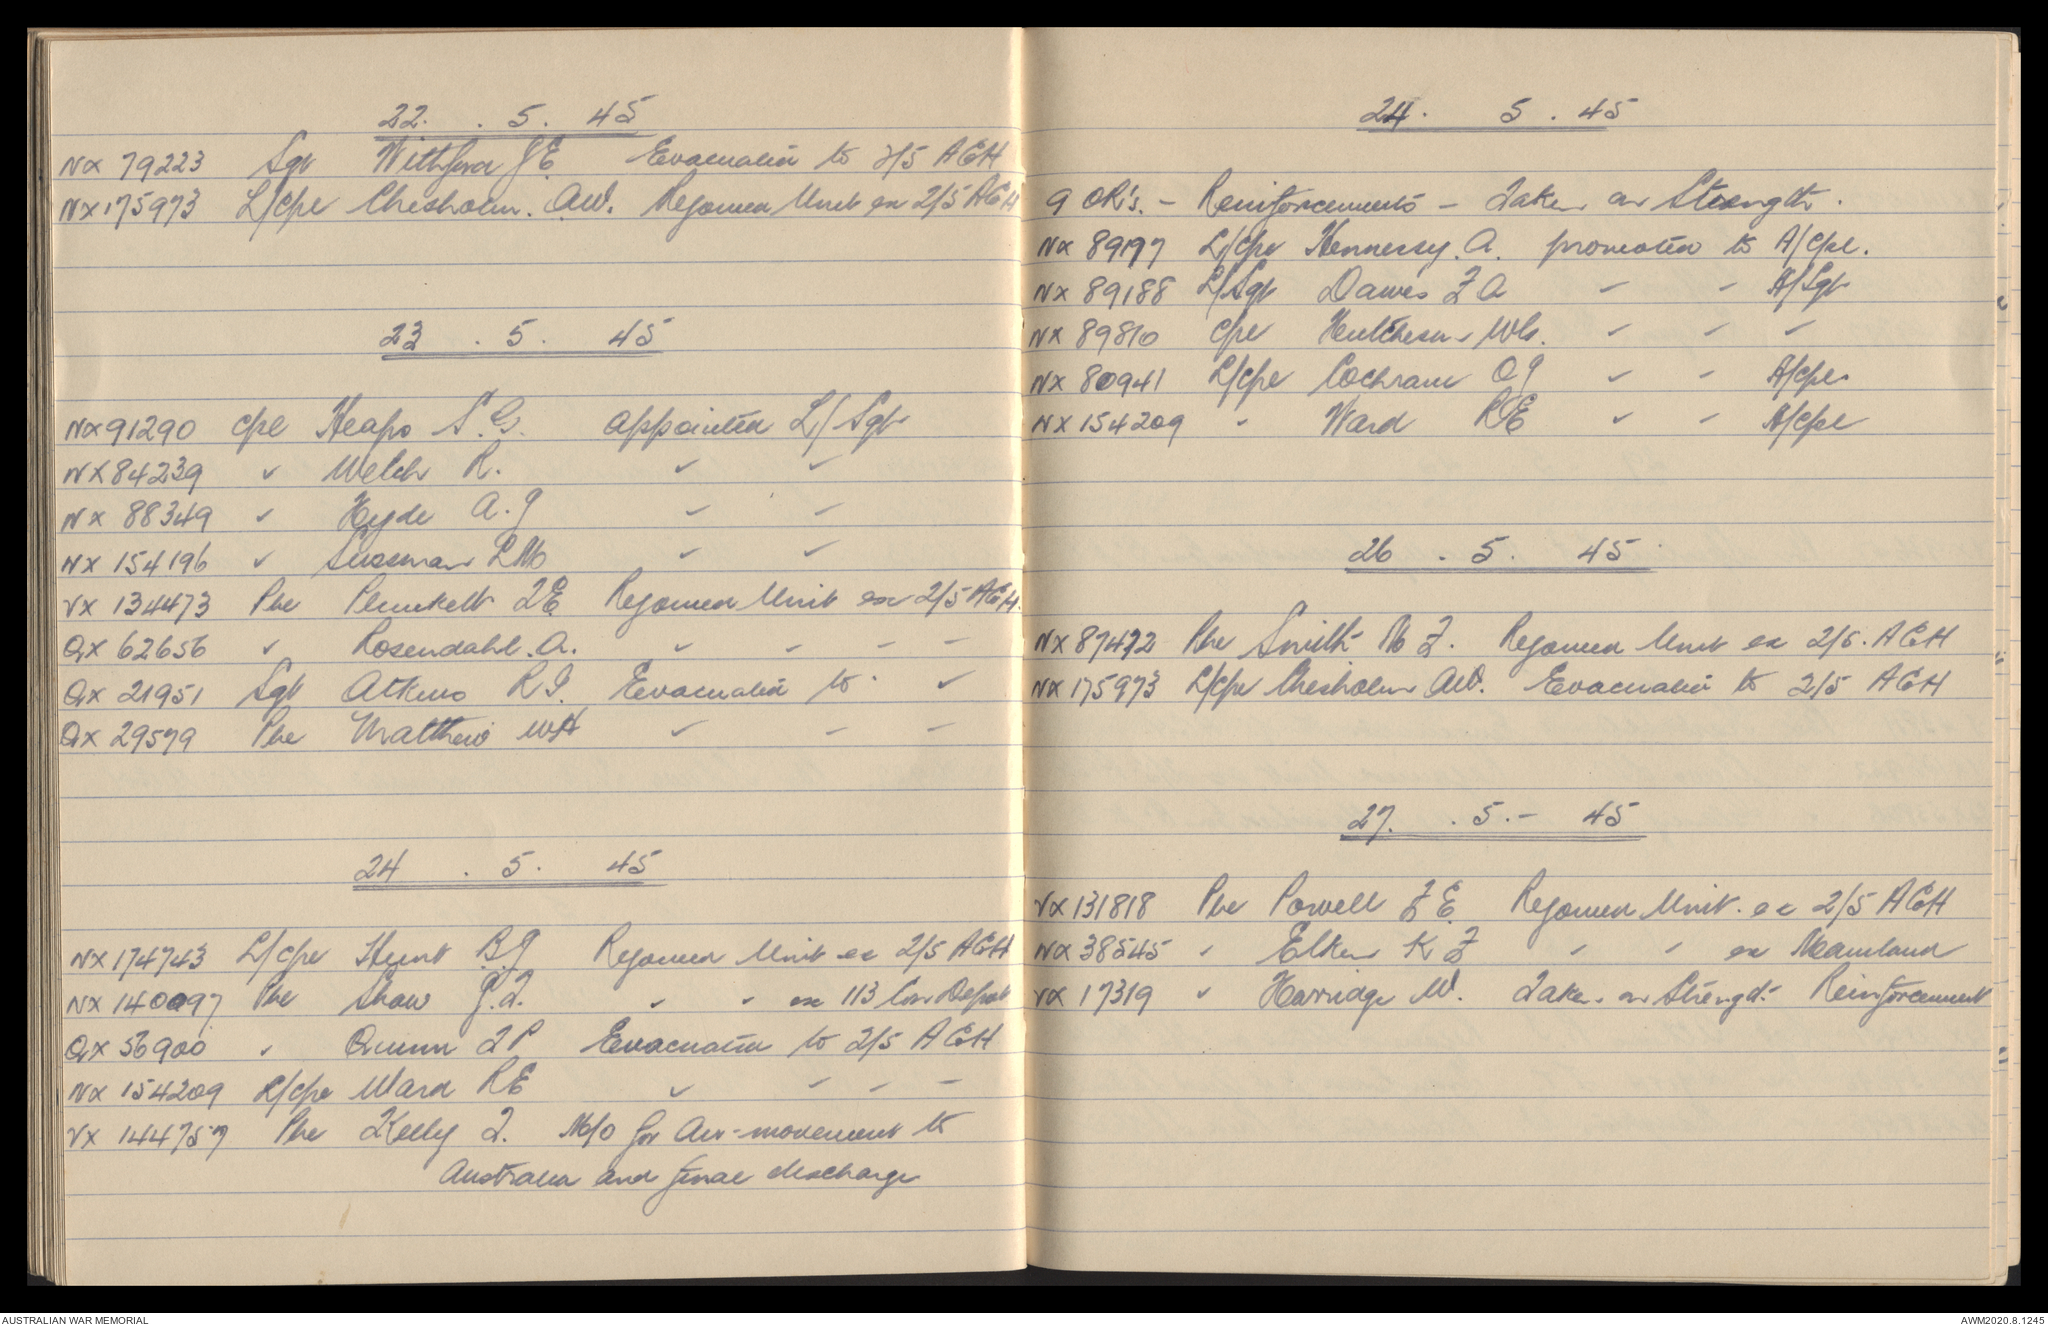 22. . 5. 45
NX 79223 Sgt Withford J E. Evacuated to 2/5 AGH
NX175973 L/Cpl Chisholm. A.W. Rejoined Unit ex 2/5 AGH
23 . 5. 45
NX91290 Cpl Heaps S. G. appointed L/Sgt
NX84239 " Welch R. " "
NX 88349 " Hyde A. J " "
NX 154196 " L M " "
VX 134473 Pte Plunkett T E. Rejoined Unit ex 2/5 AGH.
QX 62656 " Rosendahl. A. " " - -
QX 21951 Sgt Atkins R I. Evacuated to. "
QX 29579 Pte Matthew W H " - -
24 . 5. 45
NX 174743 L/Cpl Hunt B J Rejoined Unit ex 2/5 AGH
NX 140097 Pte Shaw J. T. " " ex 113 Con Depot
QX 56900 " Quinn T P Evacuated to 2/5 AGH
NX 154209 L/Cpl Ward R E " " - -
VX 144757 Pte Kelly T. M/O for Air-movement to
Australia and final discharge
24. 5 . 45
9 OR's. - Reinforcements - Taken on Strength.
NX 89197 L/Cpl Hennessy. A. promoted to A/Cpl.
NX 89188 L/Sgt Dawes F A " " A/Sgt
NX 89810 Cpl Hutcheson W " " "
NX 80941 L/Cpl Cochrane O J " " A/Cpl
NX 154209 " Ward R E " " A/Cpl
26 . 5. 45
NX 87472 Pte Smith M F. Rejoined Unit ex 2/5. AGH
NX 175973 L/Cpl Chisholm A.W. Evacuated to 2/5 AGH
27. . 5. - 45
VX 131818 Pte Powell F E. Rejoined Unit. ex 2/5 AGH
NX 38545 " Elken K F " " ex Mainland
VX 17319 " Harridge W. Taken on Strength. Reinforcement
AUSTRALIAN WAR MEMORIAL
AWM2020.8.1245